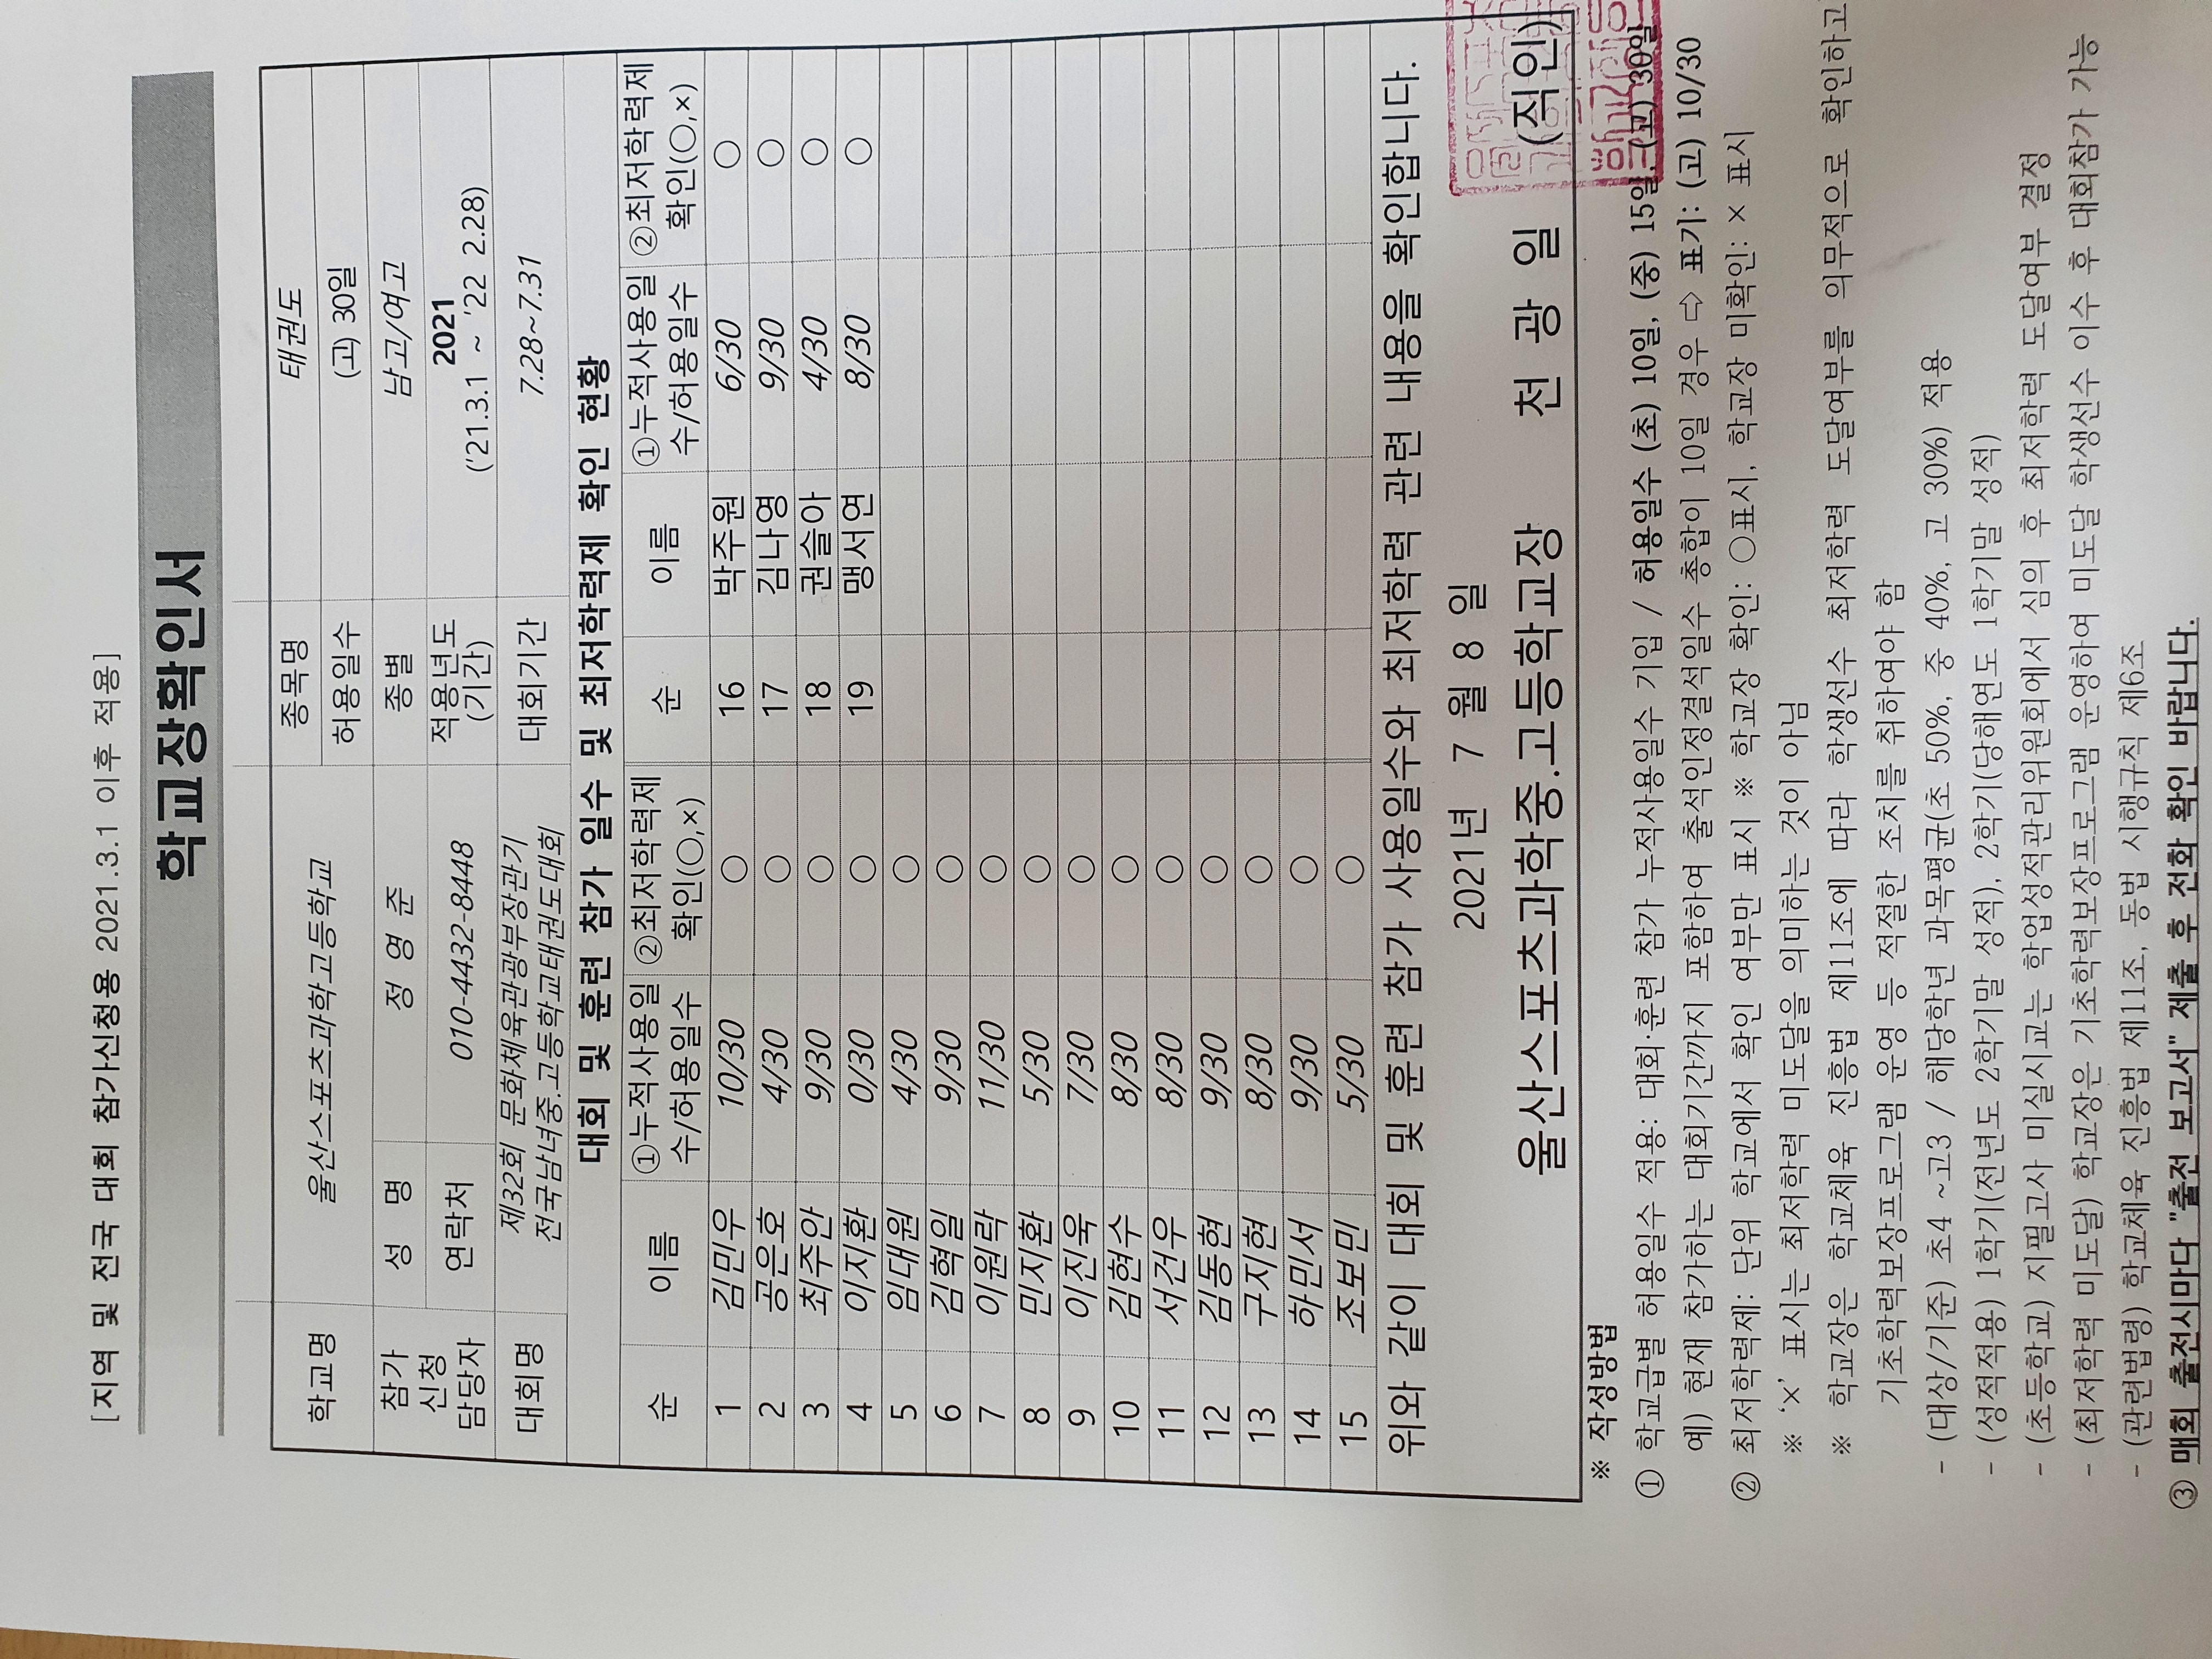 [지역 및 전국 대회 참가신청용 2021.3.1 이후 적용]
학교장확인서
학교명 울산스포츠과학고등학교 종목명 태권도
허용일수 (고) 30일
참가 신청 담당자 성 명 정 영 준 종별 남고/여고
연락처 010-4432-8448 적용년도 (기간) 2021 ('21.3.1 ~ '22 2.28)
대회명 제32회 문화체육관광부장관기 전국남녀중.고등학교태권도대회 대회기간 7.28~7.31
대회 및 훈련 참가 일수 및 최저학력제 확인 현황
순 이름 ①누적사용일수/허용일수 ②최저학력제 확인(○,×) 순 이름 ①누적사용일수/허용일수 ②최저학력제 확인(○,×)
1 김민우 10/30 ○ 16 박주원 6/30 ○
2 공은호 4/30 ○ 17 김나영 9/30 ○
3 최주안 9/30 ○ 18 권슬아 4/30 ○
4 이지환 0/30 ○ 19 맹서연 8/30 ○
5 임대원 4/30 ○
6 김혁일 9/30 ○
7 이원락 11/30 ○
8 민지환 5/30 ○
9 이진욱 7/30 ○
10 김현수 8/30 ○
11 서건우 8/30 ○
12 김동현 9/30 ○
13 구지현 8/30 ○
14 하민서 9/30 ○
15 조보민 5/30 ○
위와 같이 대회 및 훈련 참가 사용일수와 최저학력 관련 내용을 확인합니다.
2021년 7 월 8 일
울산스포츠과학중.고등학교장 천 광 일 (직인)
※ 작성방법
① 학교급별 허용일수 적용: 대회·훈련 참가 누적사용일수 기입 / 허용일수 (초) 10일, (중) 15일, (고) 30일
예) 현재 참가하는 대회기간까지 포함하여 출석인정결석일수 총합이 10일 경우 ⇨ 표기: (고) 10/30
② 최저학력제: 단위 학교에서 확인 여부만 표시 ※ 학교장 확인: ○표시, 학교장 미확인: × 표시
※ '×' 표시는 최저학력 미도달을 의미하는 것이 아님
※ 학교장은 학교체육 진흥법 제11조에 따라 학생선수 최저학력 도달여부를 의무적으로 확인하고
기초학력보장프로그램 운영 등 적절한 조치를 취하여야 함
- (대상/기준) 초4 ~고3 / 해당학년 과목평균(초 50%, 중 40%, 고 30%) 적용
- (성적적용) 1학기(전년도 2학기말 성적), 2학기(당해연도 1학기말 성적)
- (초등학교) 지필고사 미실시교는 학업성적관리위원회에서 심의 후 최저학력 도달여부 결정
- (최저학력 미도달) 학교장은 기초학력보장프로그램 운영하여 미도달 학생선수 이수 후 대회참가 가능
- (관련법령) 학교체육 진흥법 제11조, 동법 시행규칙 제6조
③ 매회 출전시마다 "출전 보고서" 제출 후 전화 확인 바랍니다.